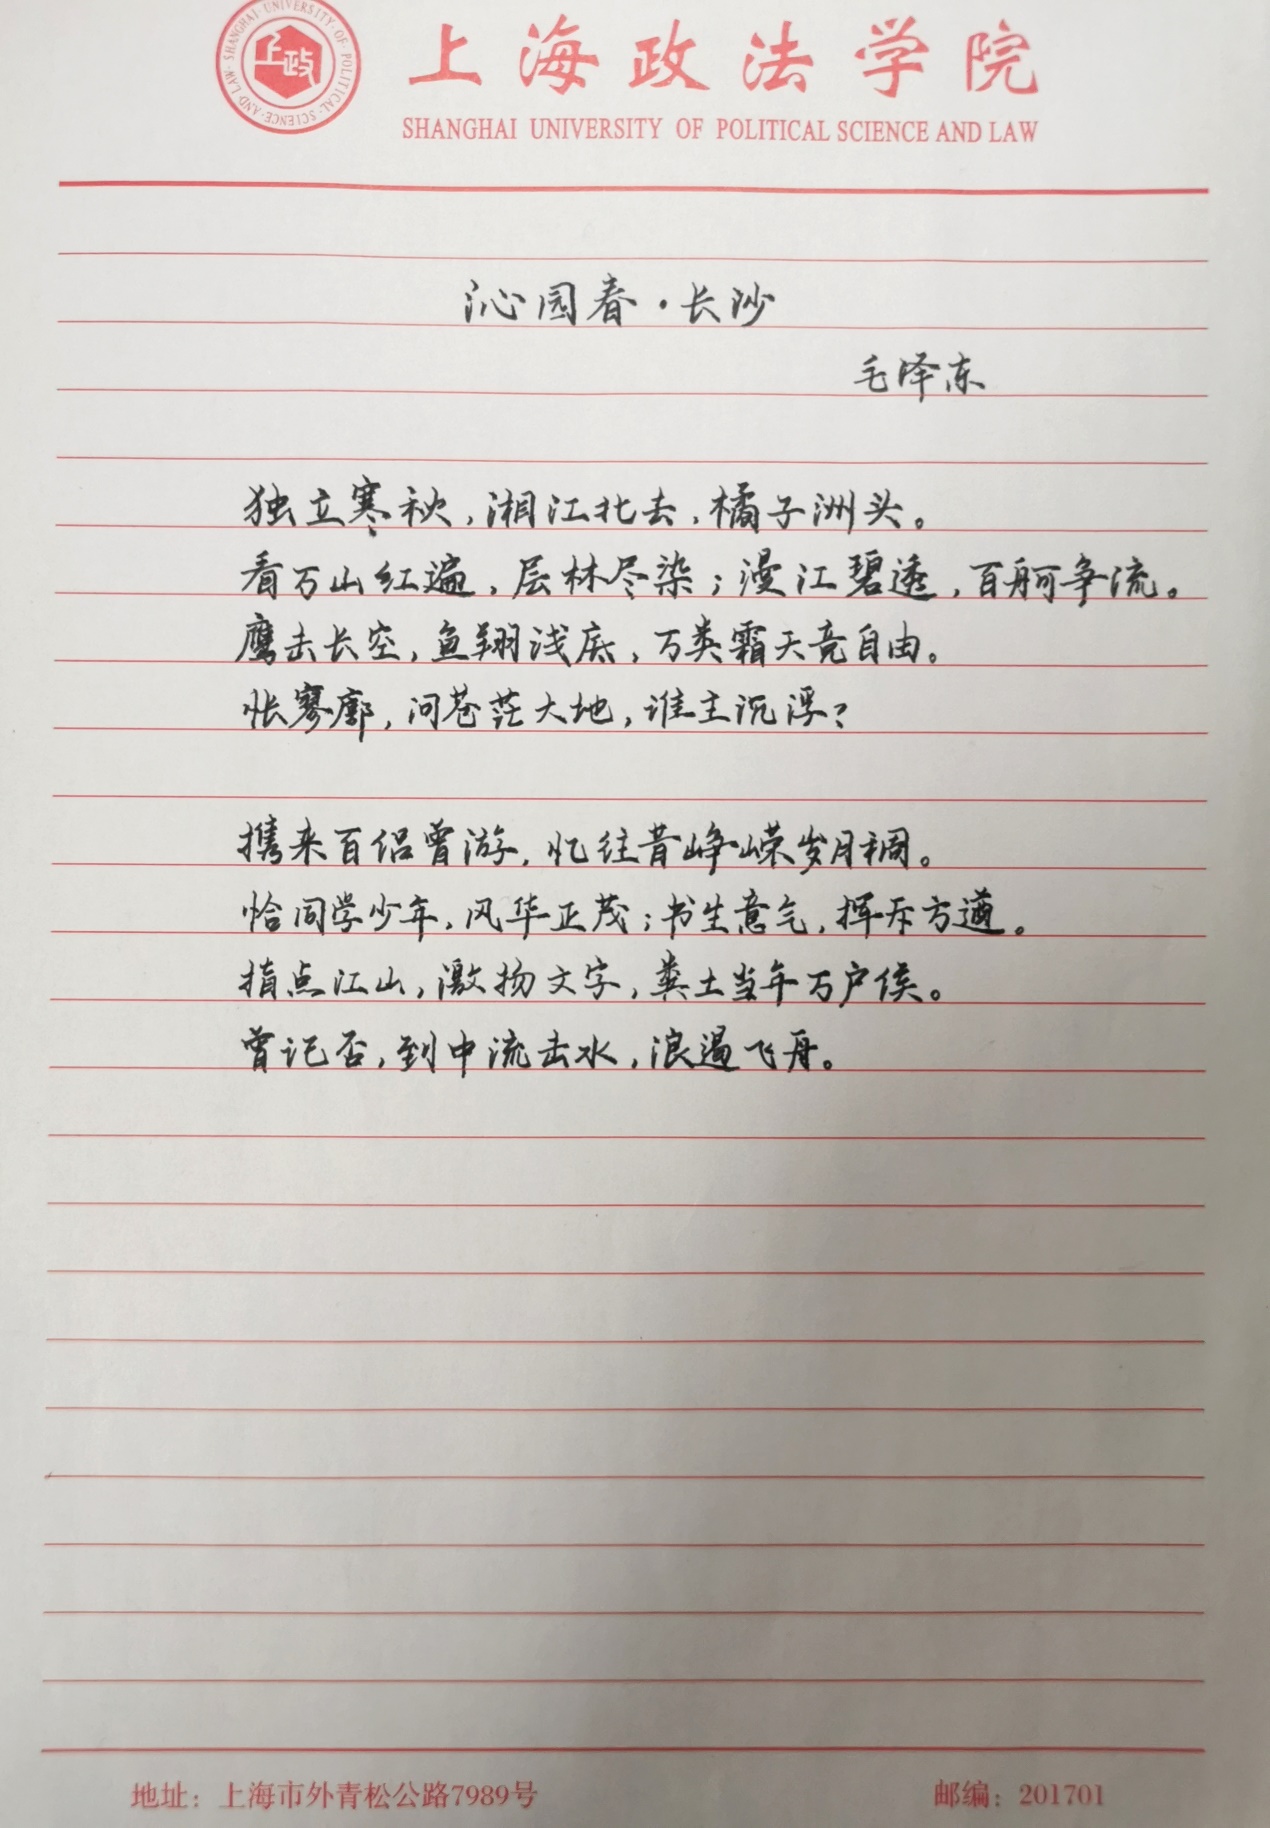 SHANGHAI UNIVERSITY OF POLITICAL SCIENCE AND LAW
上政
上海政法学院
SHANGHAI UNIVERSITY OF POLITICAL SCIENCE AND LAW
沁园春·长沙
毛泽东
独立寒秋，湘江北去，橘子洲头。
看万山红遍，层林尽染；漫江碧透，百舸争流。
鹰击长空，鱼翔浅底，万类霜天竞自由。
怅寥廓，问苍茫大地，谁主沉浮？
携来百侣曾游，忆往昔峥嵘岁月稠。
恰同学少年，风华正茂；书生意气，挥斥方遒。
指点江山，激扬文字，粪土当年万户侯。
曾记否，到中流击水，浪遏飞舟。
地址：上海市外青松公路7989号
邮编：201701